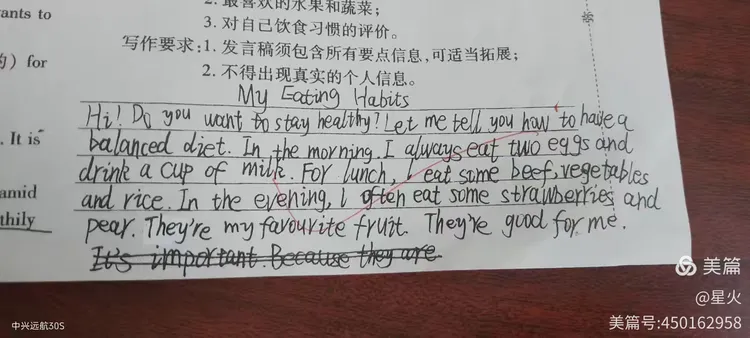 ants to
2. 最喜欢的水果和蔬菜；
3. 对自己饮食习惯的评价。
的）for
写作要求：1. 发言稿须包含所有要点信息，可适当拓展；
2. 不得出现真实的个人信息。
My Eating Habits
Hi! Do you want to stay healthy? Let me tell you how to have a
. It is
balanced diet. In the morning, I always eat two eggs and
drink a cup of milk. For lunch, I eat some beef, vegetables
amid
and rice. In the evening, I often eat some strawberries and
thily
pear. They're my favourite fruit. They're good for me.
It's important. Because they are
美篇
@星火
中兴远航30S
美篇号:450162958